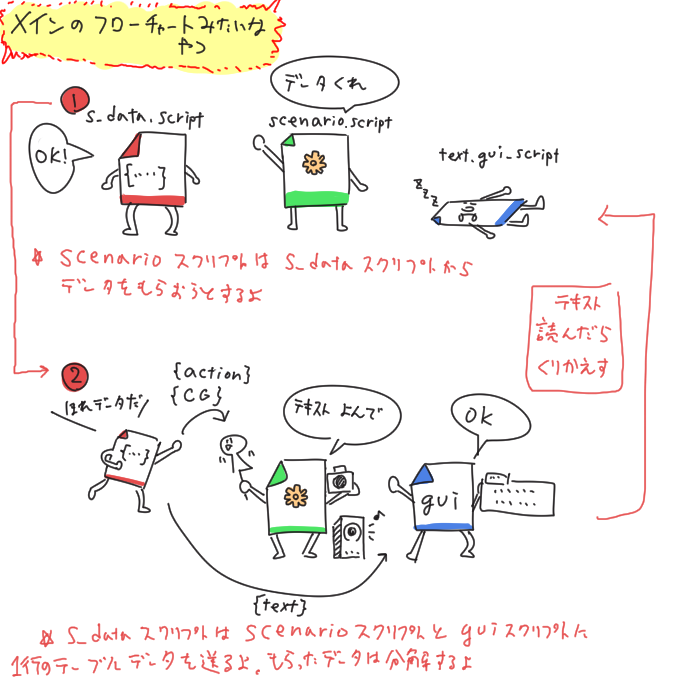 メインの フローチャートみたいな
やつ
1
データくれ
s_data.script
scenario.script
OK!
{....}
text.gui_script
zzz
※ scenario スクリプトは s_data スクリプトから
データをもらおうとするよ
テキスト
読んだら
くりかえす
2
{action}
{CG}
ほれデータだ!
テキスト よんで
OK
{...}
gui
♪
{text}
※ s_data スクリプトは scenario スクリプトと gui スクリプトに
1行のテーブルデータを送るよ。もらったデータは分解するよ